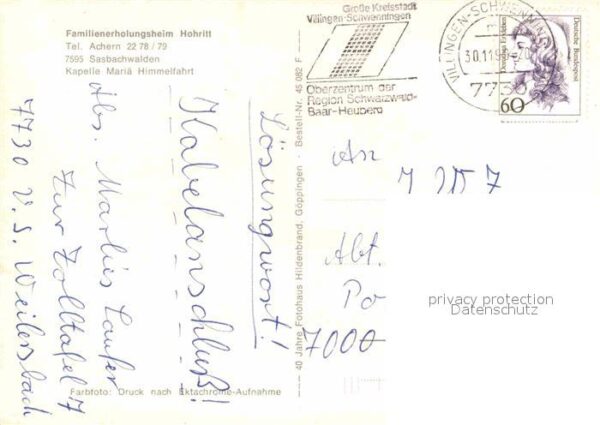 Familienerholungsheim Hohritt
Tel. Achern 22 78 / 79
7595 Sasbachwalden
Kapelle Mariä Himmelfahrt
Abs. Marlies Laufer
Zur Zolltafel 7
7730 V. S. Weilersbach
Kabelanschluß!
Lösungwort!
Farbfoto: Druck nach Ektachrome-Aufnahme
40 Jahre Fotohaus Hildenbrand, Göppingen · Bestell-Nr. 45 082 F
Große Kreisstadt
Villingen-Schwenningen
Oberzentrum der
Region Schwarzwald-
Baar-Heuberg
VILLINGEN-SCHWENNINGEN
30.11.
7730
Deutsche Bundespost
60
An
Abt.
Po
7000
privacy protection
Datenschutz